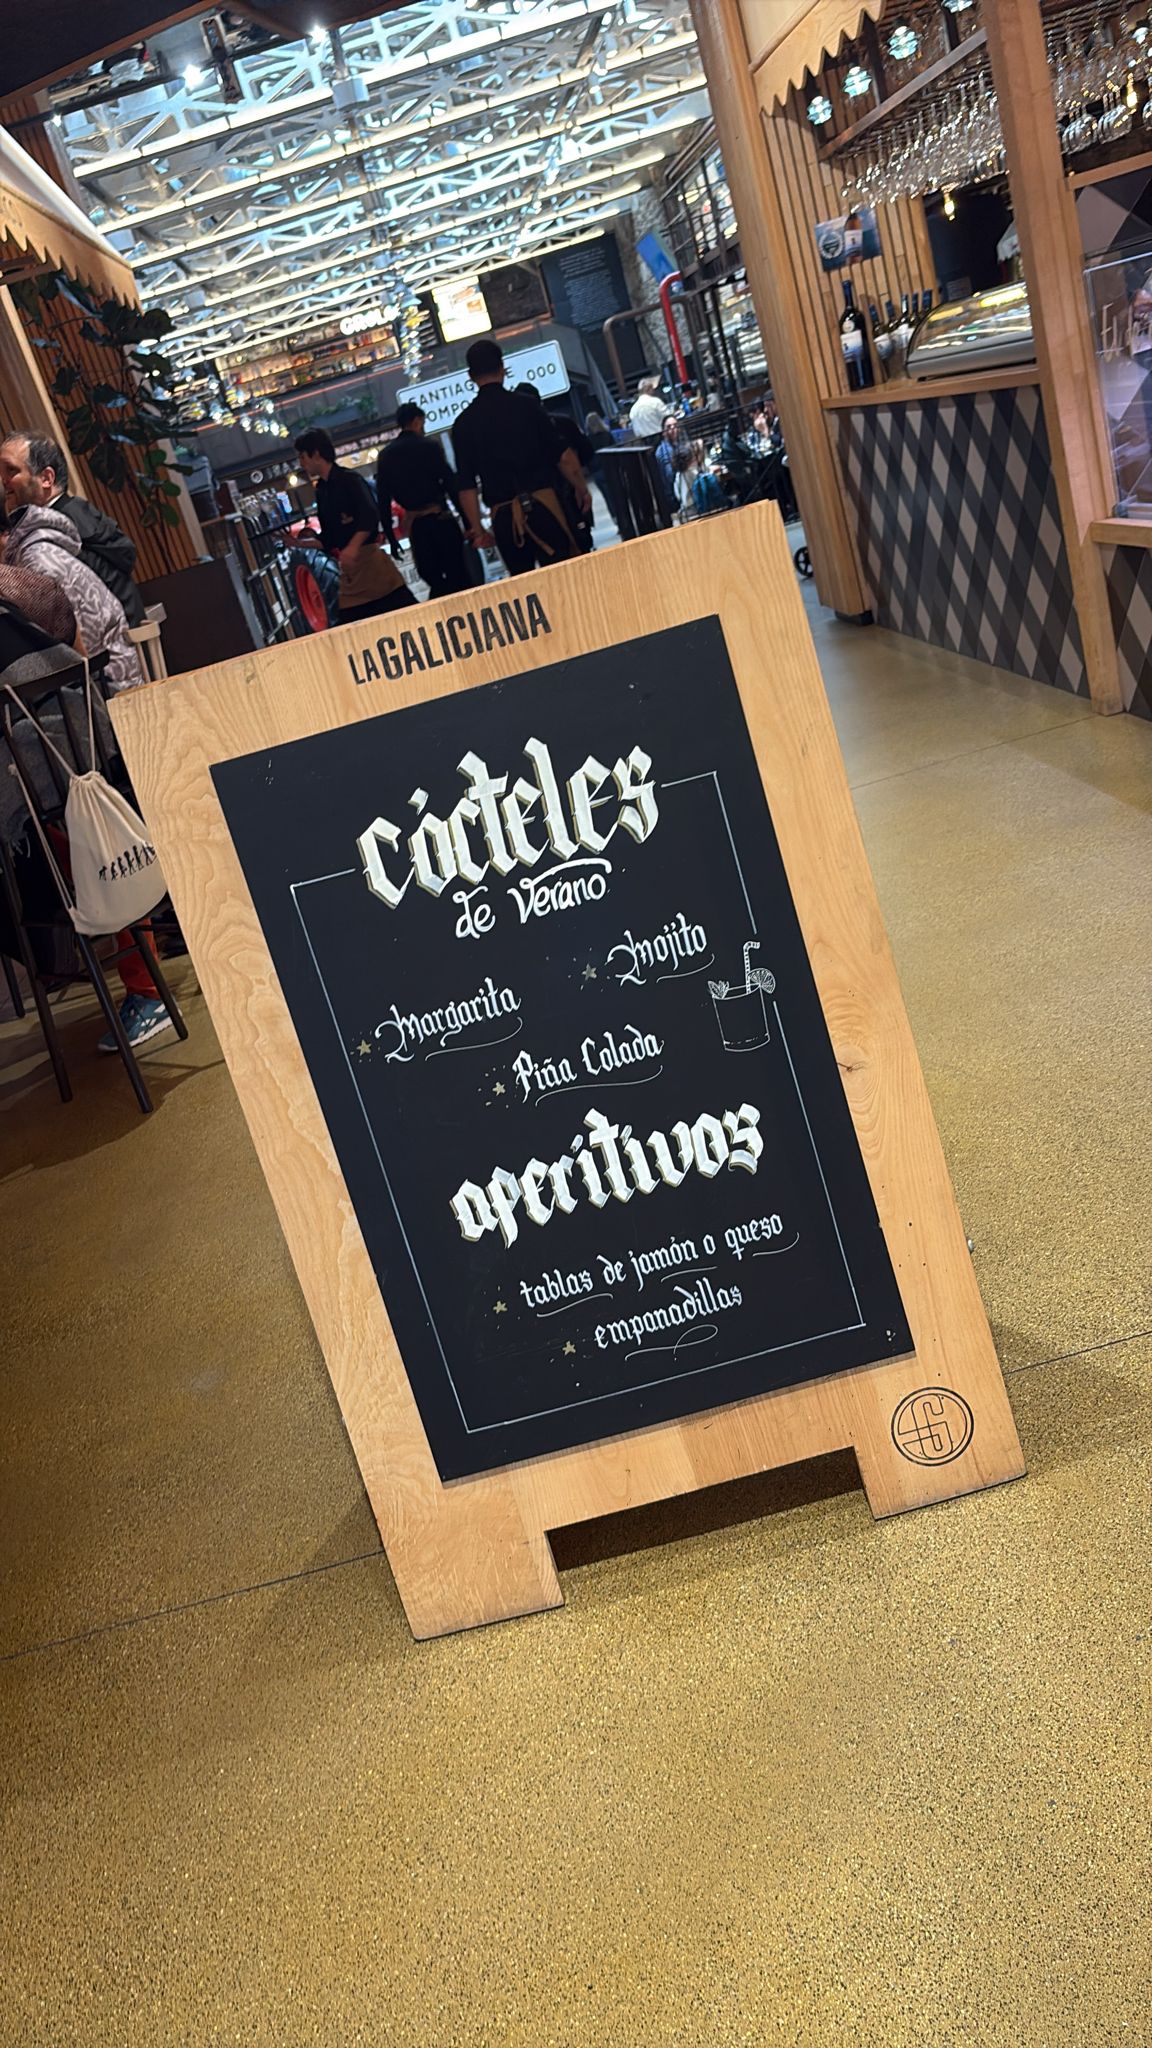 SANTIAGO DE 000
LA GALICIANA
cócteles
de Verano
Mojito
Margarita
Piña Colada
aperitivos
tablas de jamón o queso
empanadillas
G